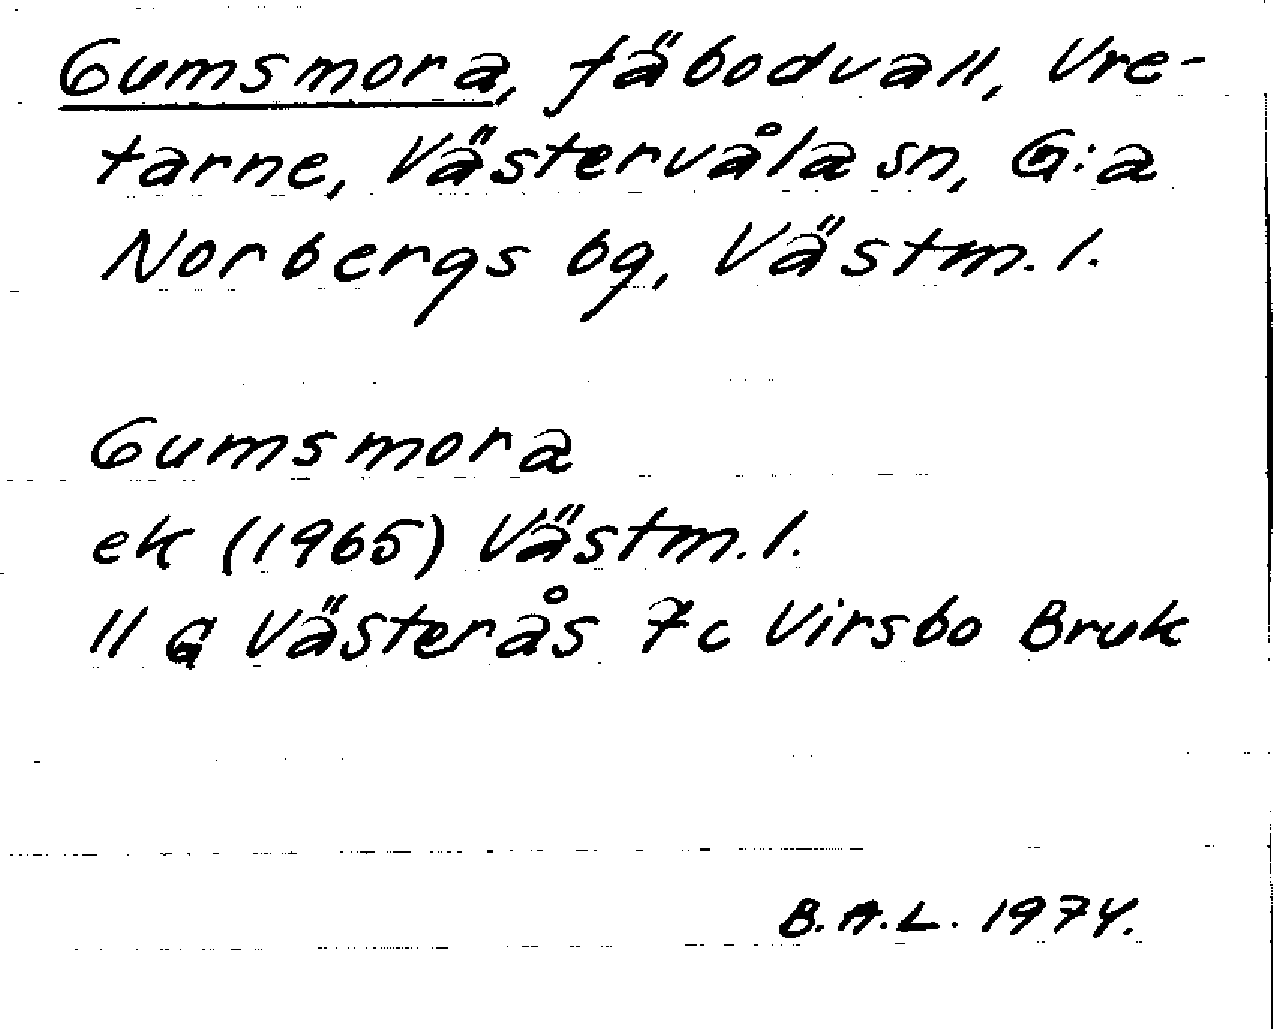 Gumsmora, fäbodvall, Vre-
tarne, Västervåla sn, G:a
Norbergs bg, Västm. l.
Gumsmora
ek (1965) Västm. l.
11 G Västerås 7c Virsbo Bruk
B.A.L. 1974.